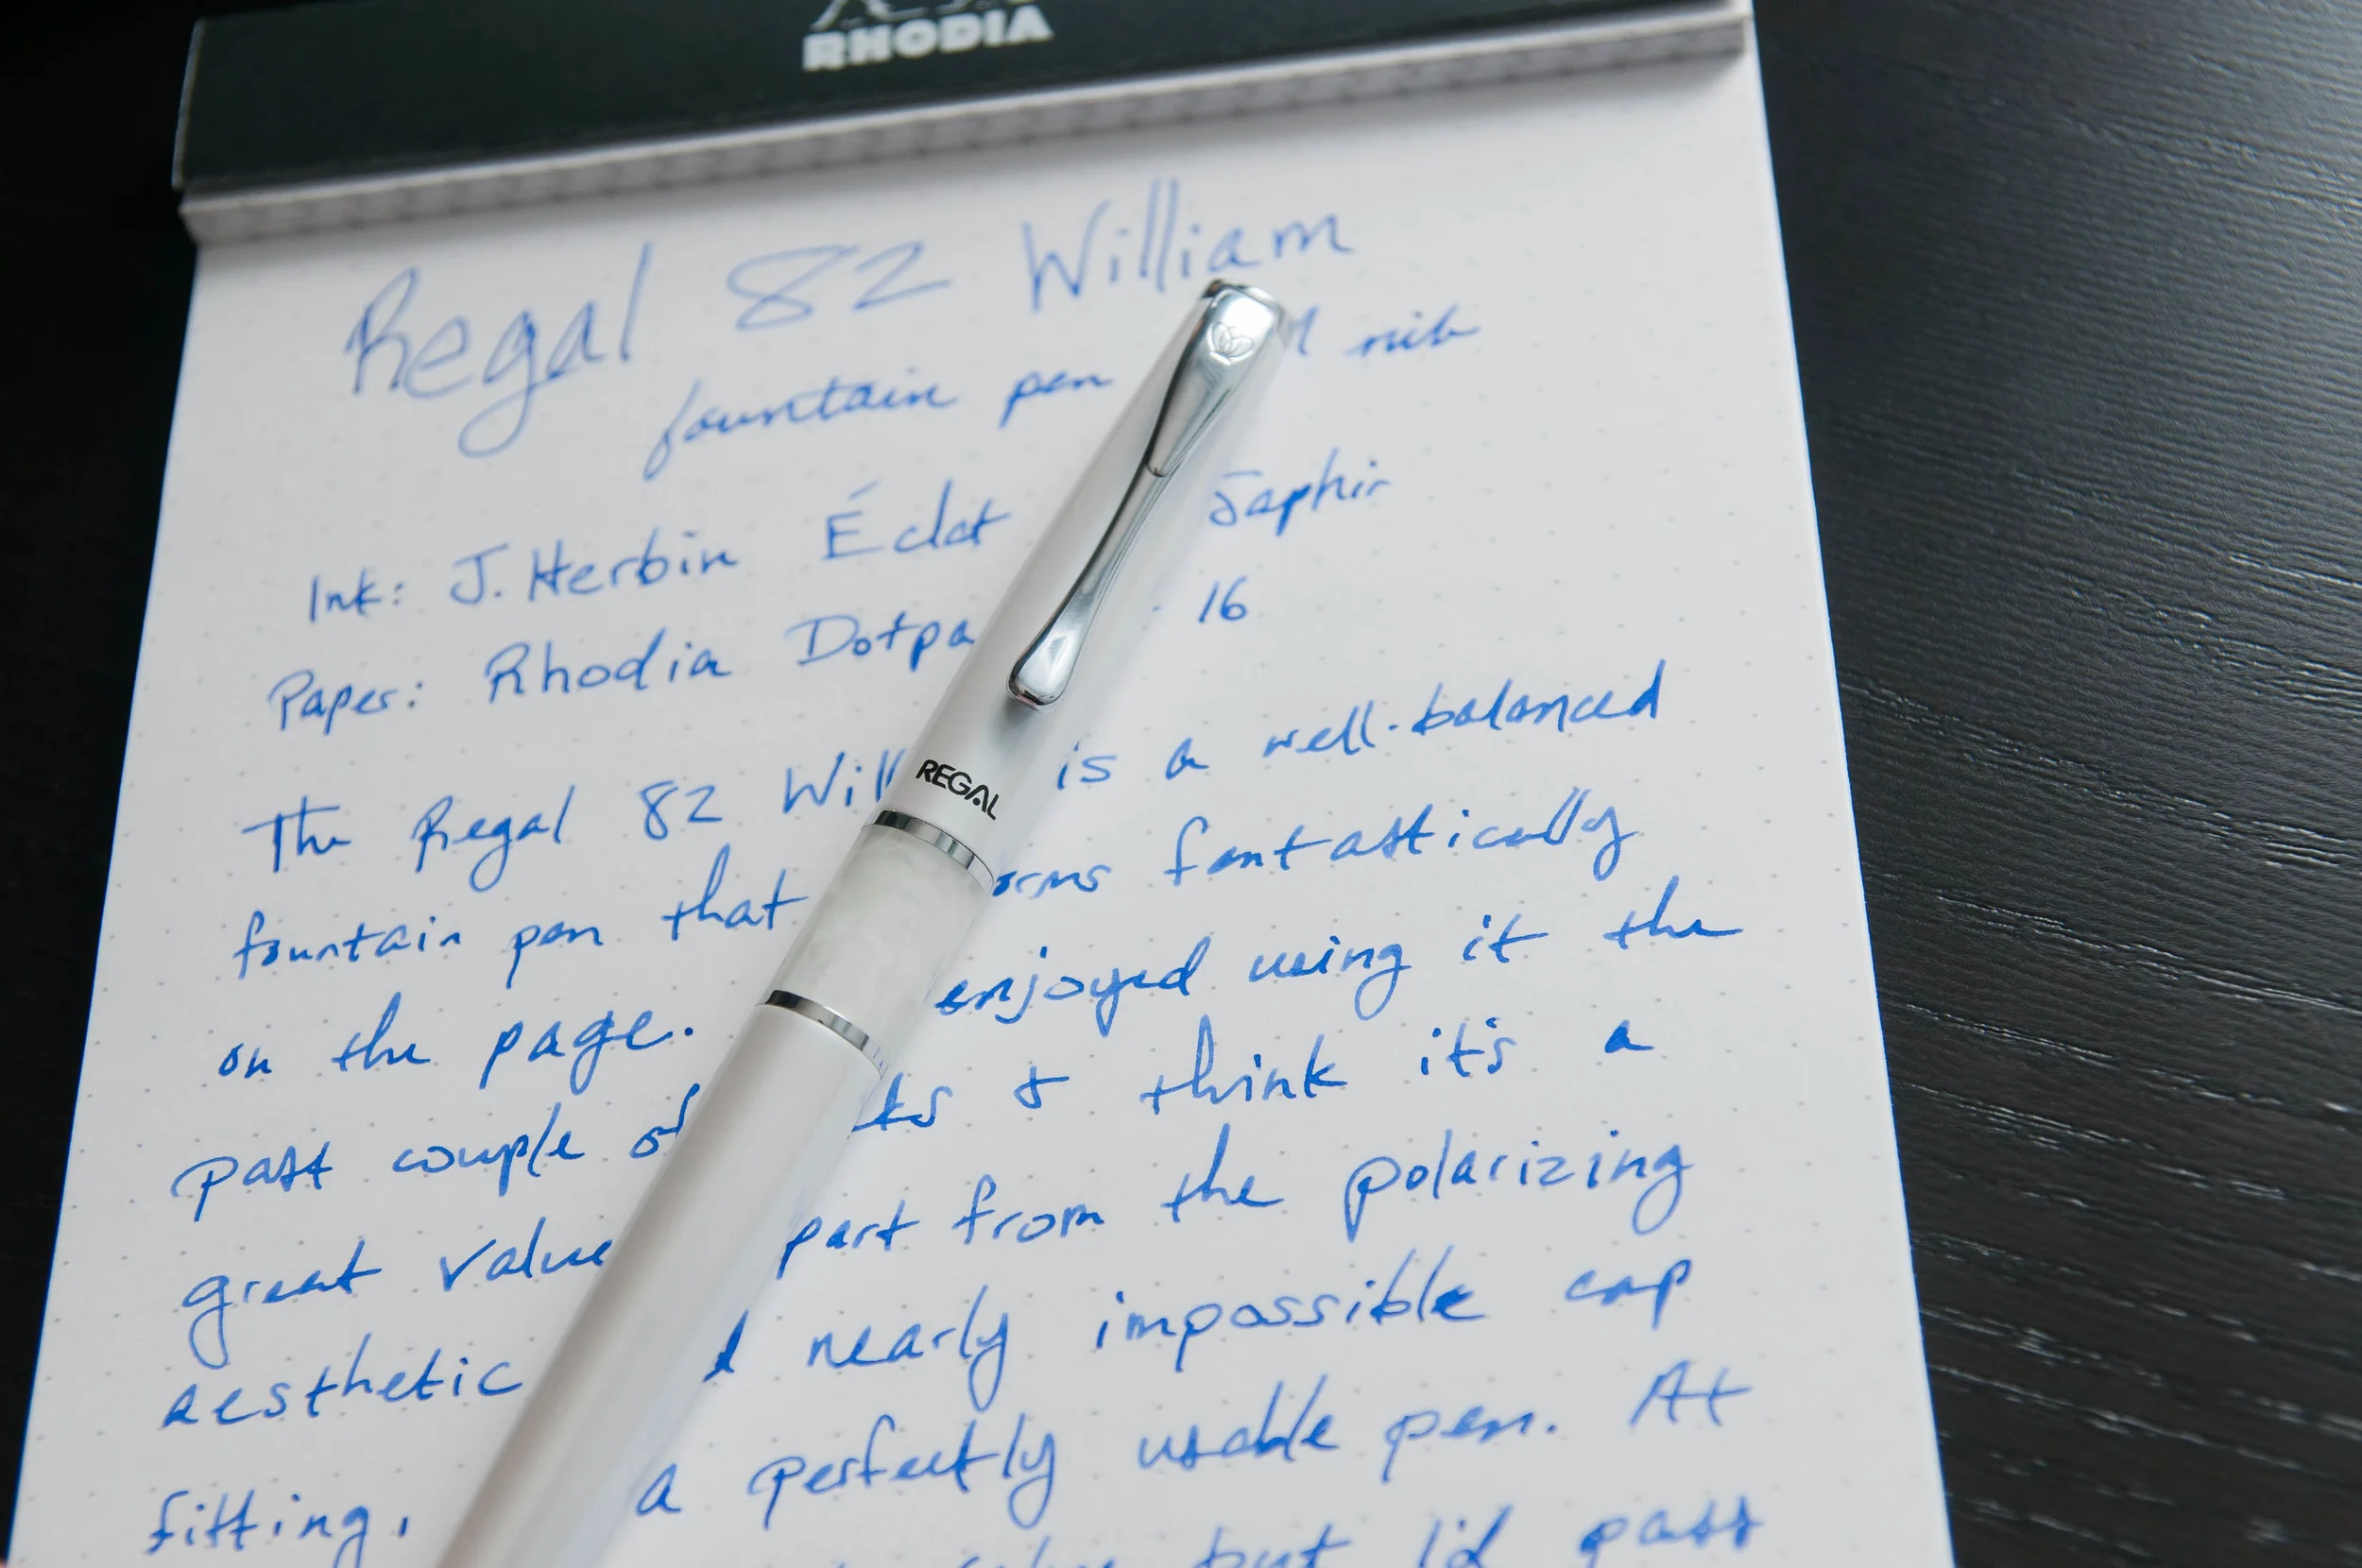 RHODIA
Regal 82 William
fountain pen nib
Ink: J. Herbin Éclat Saphir
Paper: Rhodia Dotpa 16
REGAL
The Regal 82 Will is a well-balanced
fountain pen that orms fantastically
on the page. enjoyed using it the
past couple of ks & think it's a
great value part from the polarizing
aesthetic d nearly impossible cap
fitting, a perfectly usable pen. At
but I'd pass